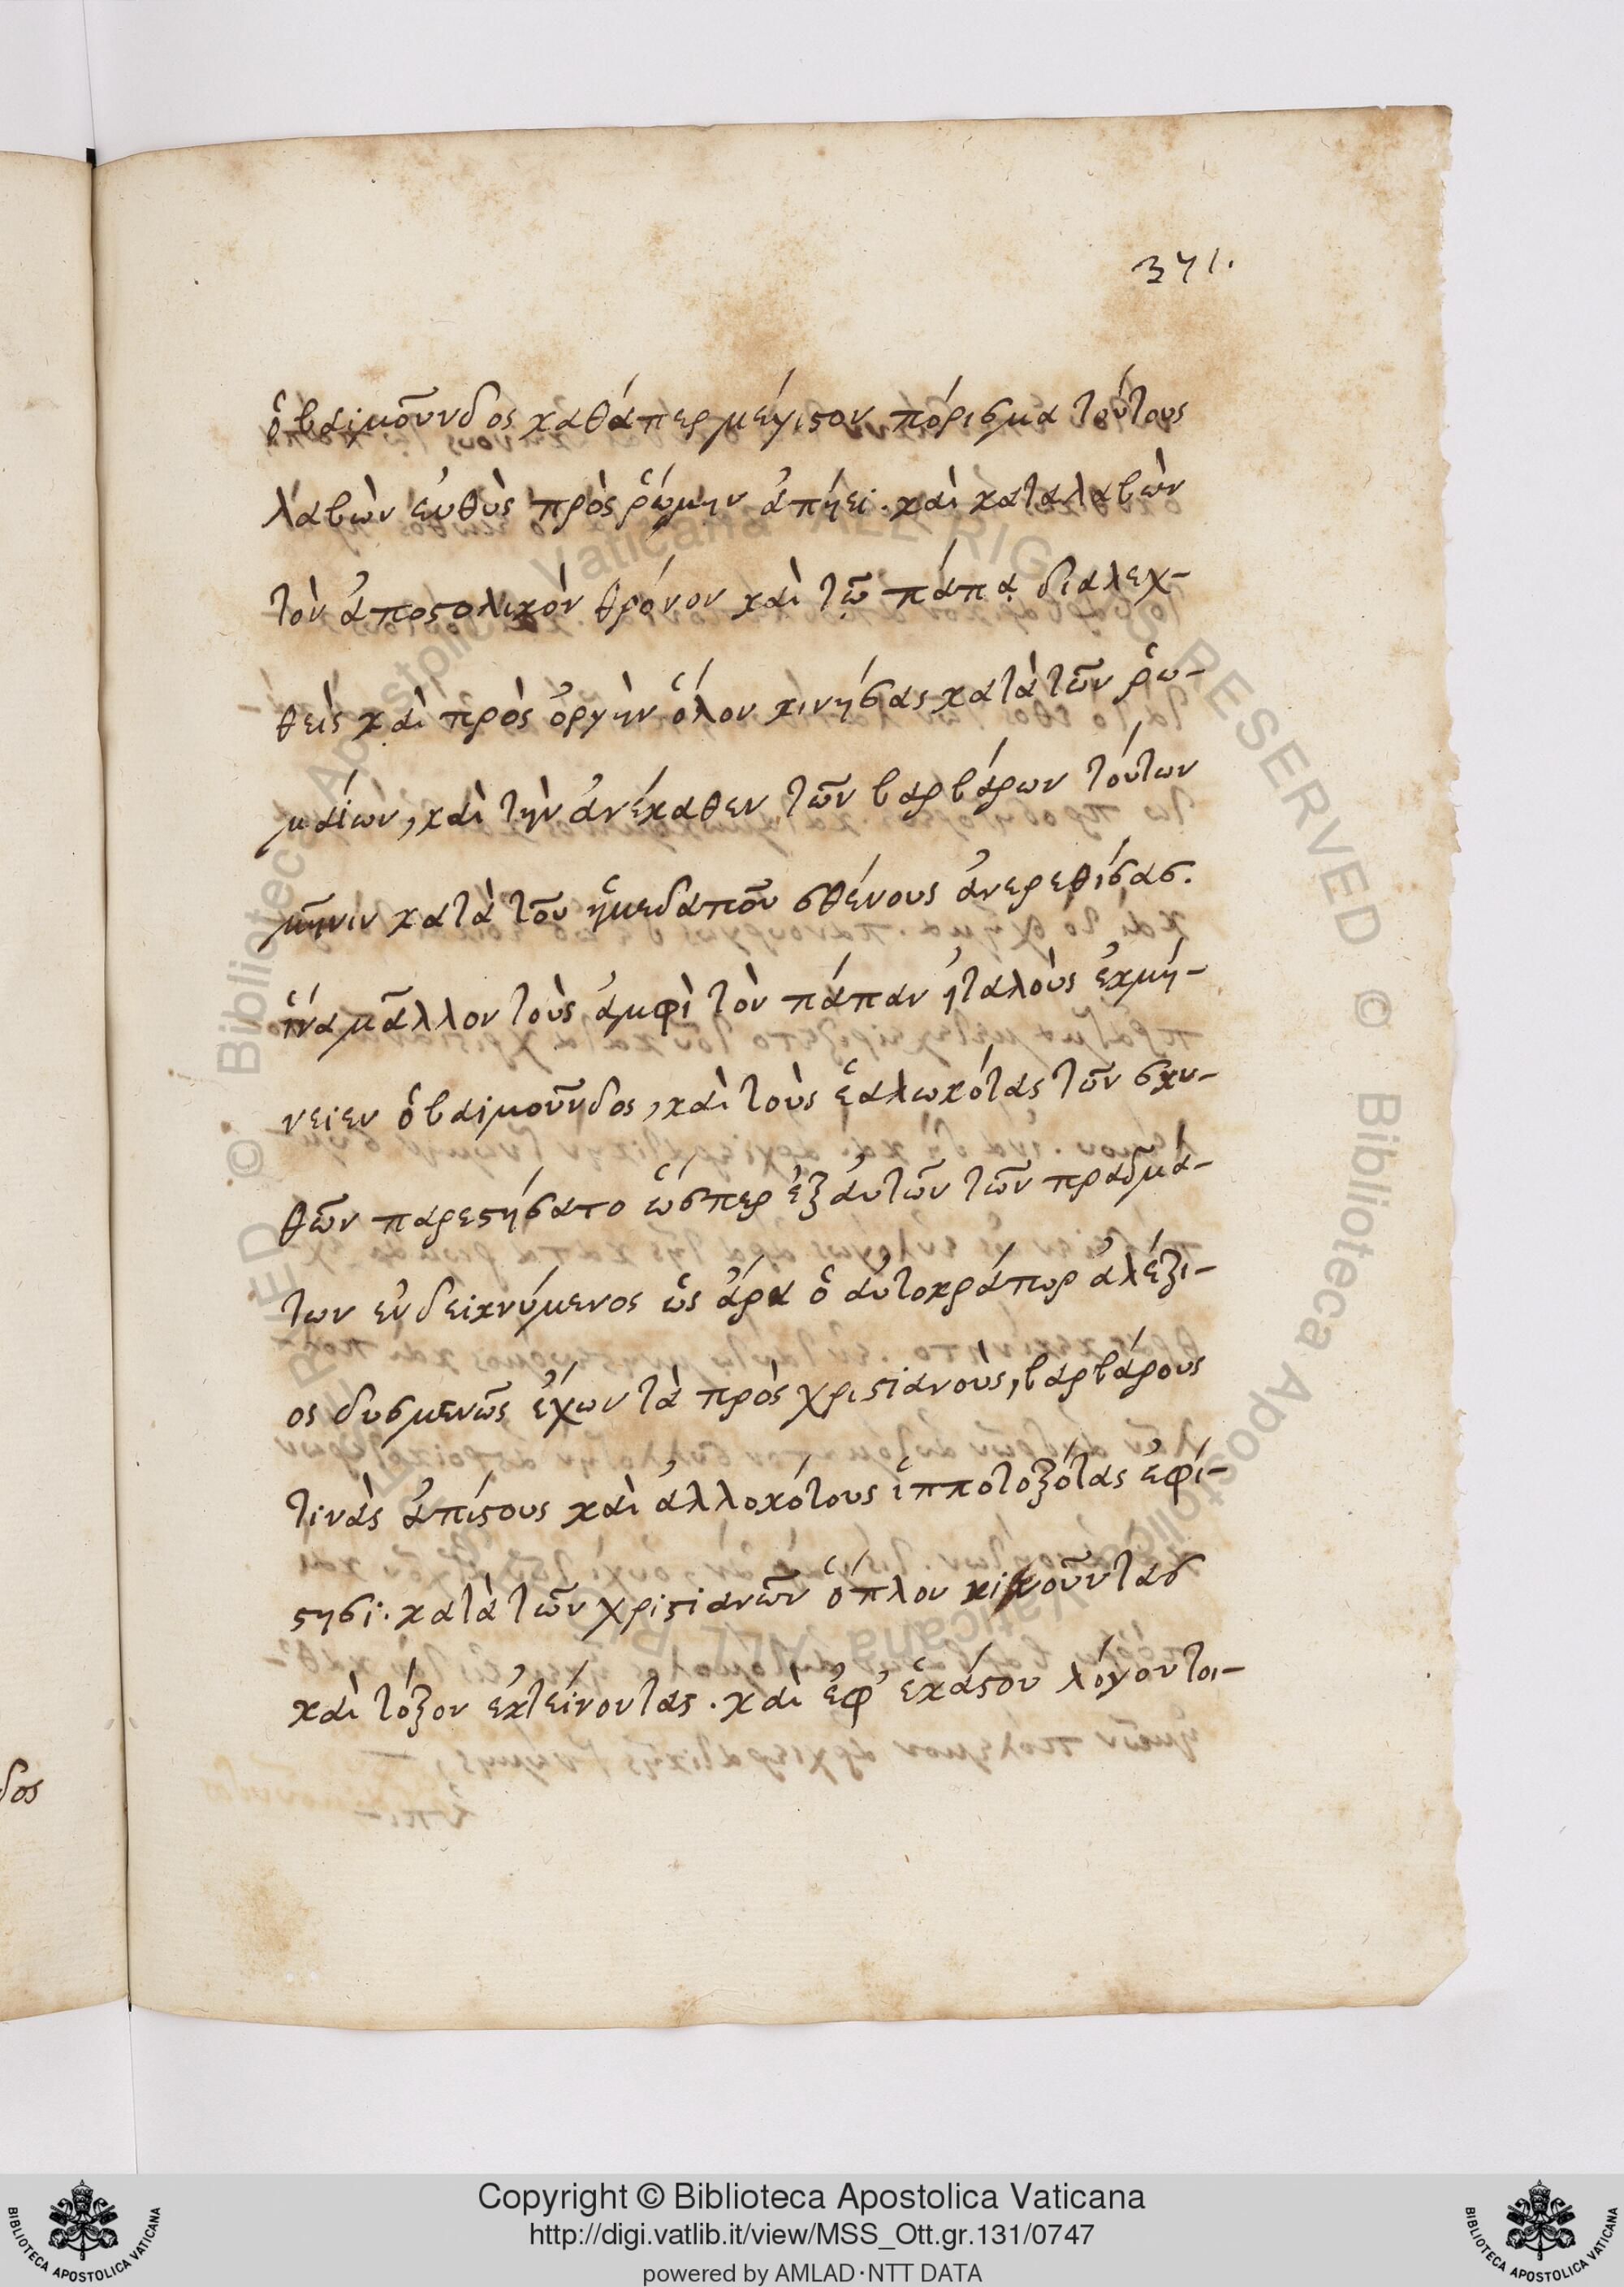 371.
ὁ βαϊμοῦνδος καθάπερ μέγιστον πόρισμα τούτους
λαβὼν εὐθὺς πρὸς ῥώμην ἀπήει. καὶ καταλαβὼν
τὸν ἀποστολικὸν θρόνον καὶ τῷ πάπᾳ διαλεχ-
θεὶς καὶ πρὸς ὀργὴν ὅλον κινήσας κατὰ τῶν ῥω-
μαίων, καὶ τὴν ἀνέκαθεν τῶν βαρβάρων τούτων
μῆνιν κατὰ τοῦ ἡμεδαποῦ σθένους ἀνερεθίσας.
ἵνα μᾶλλον τοὺς ἀμφὶ τὸν πάπαν ἠταλοὺς ἐκμή-
νειεν ὁ βαϊμοῦνδος, καὶ τοὺς ἑαλωκότας τῶν σκυ-
θῶν παρεστήσατο ὥσπερ ἐξ αὐτῶν τῶν πραγμά-
των ἐνδεικνύμενος ὡς ἄρα ὁ αὐτοκράτωρ ἀλέξι-
ος δυσμενῶς ἔχων τὰ πρὸς χριστιανοὺς, βαρβάρους
τινὰς ἀπίστους καὶ ἀλλοκότους ἱπποτοξότας ἐφί-
στησι. κατὰ τῶν χριστιανῶν ὅπλον κινοῦντας
καὶ τόξον ἐκτείνοντας. καὶ ἐφ' ἑκάστου λόγου τοι-
δος
Copyright © Biblioteca Apostolica Vaticana
http://digi.vatlib.it/view/MSS_Ott.gr.131/0747
powered by AMLAD·NTT DATA
BIBLIOTECA APOSTOLICA VATICANA
BIBLIOTECA APOSTOLICA VATICANA